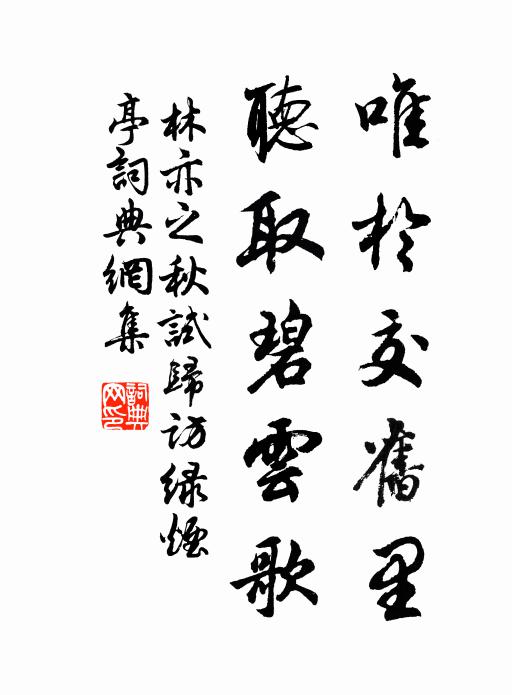 唯於交舊里
聽取碧雲歌
林亦之秋試歸訪緑煙
亭詞典網集
詞典
网印